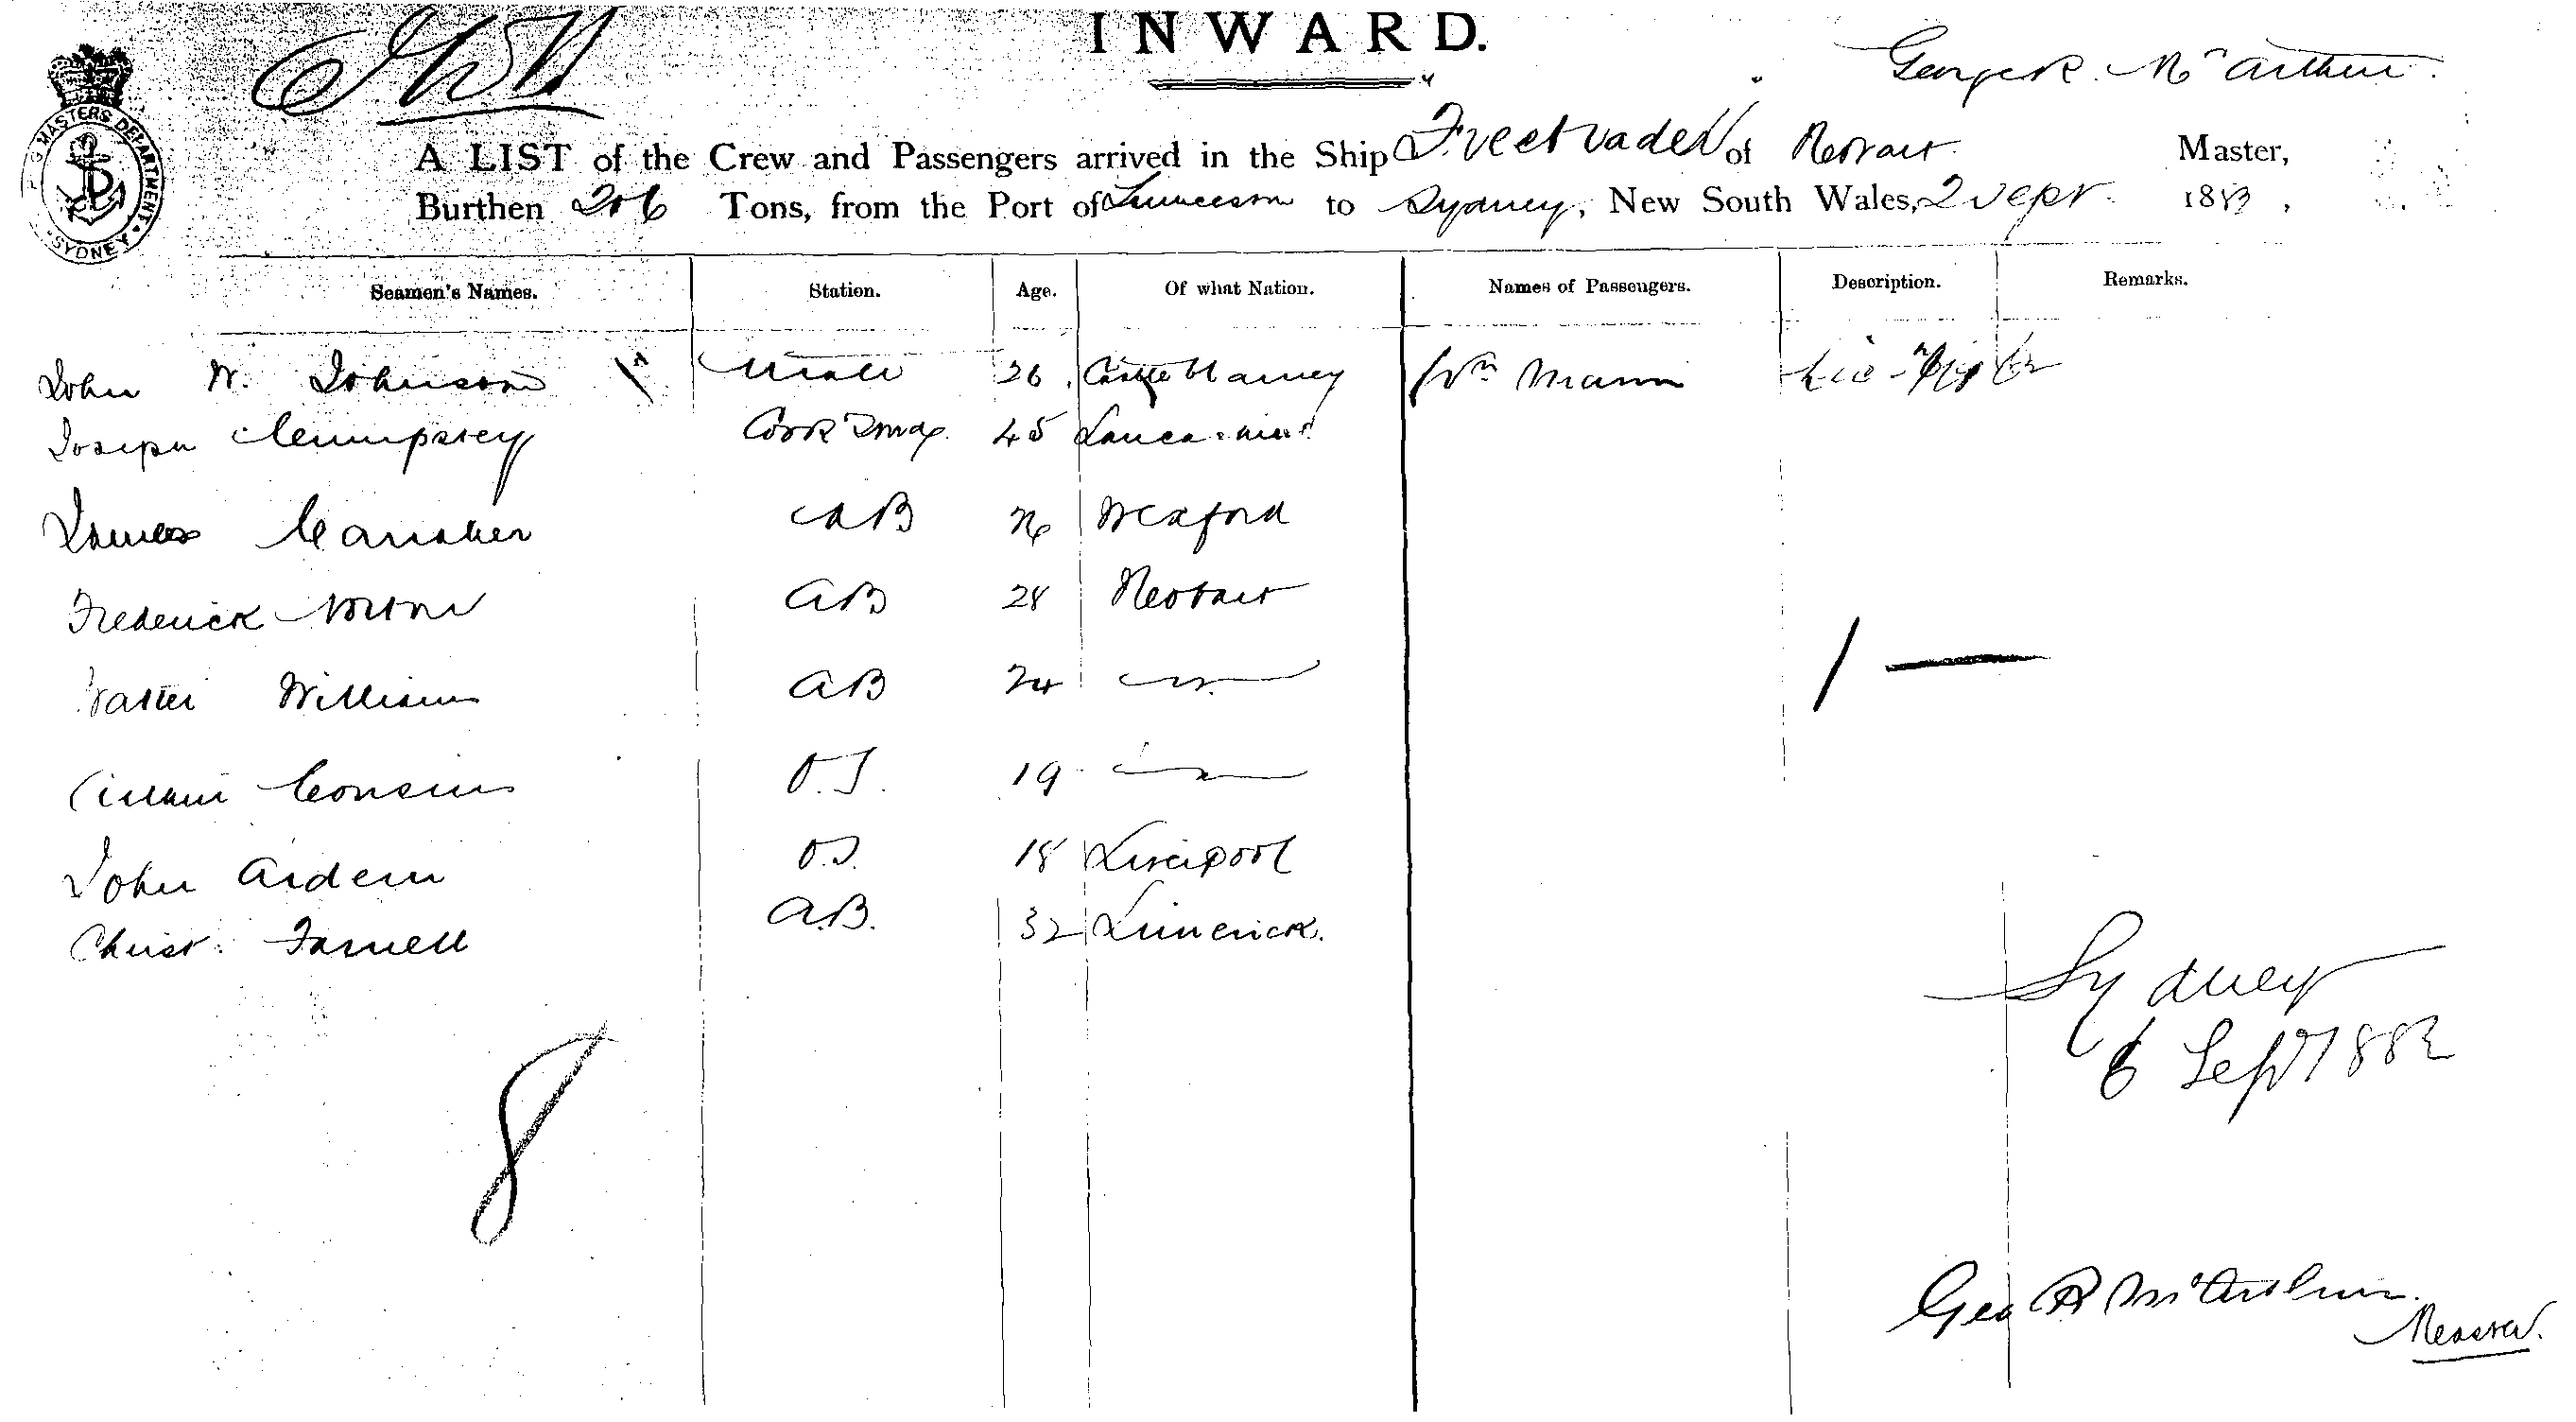 INWARD.
George R. McArthur
MASTERS DEPARTMENT
SYDNEY
A LIST of the Crew and Passengers arrived in the Ship Freetrader of Hobart Master,
Burthen 206 Tons, from the Port of to Sydney, New South Wales, 2 Sept. 1883,
Seamen's Names. Station. Age. Of what Nation. Names of Passengers. Description. Remarks.
John W. Johnson Mate 26 Wm Mann
Joseph Cook 45
James AB 26 Wexford
Frederick AB 28 Hobart
Walter Williams AB 24
William Cousins O.S. 19
John Ardern O.S. 18 Liverpool
Christ. Farrell A.B. 32 Limerick.
1 —
Sydney
6 Sept 1883
8
Geo R McArthur
Master.